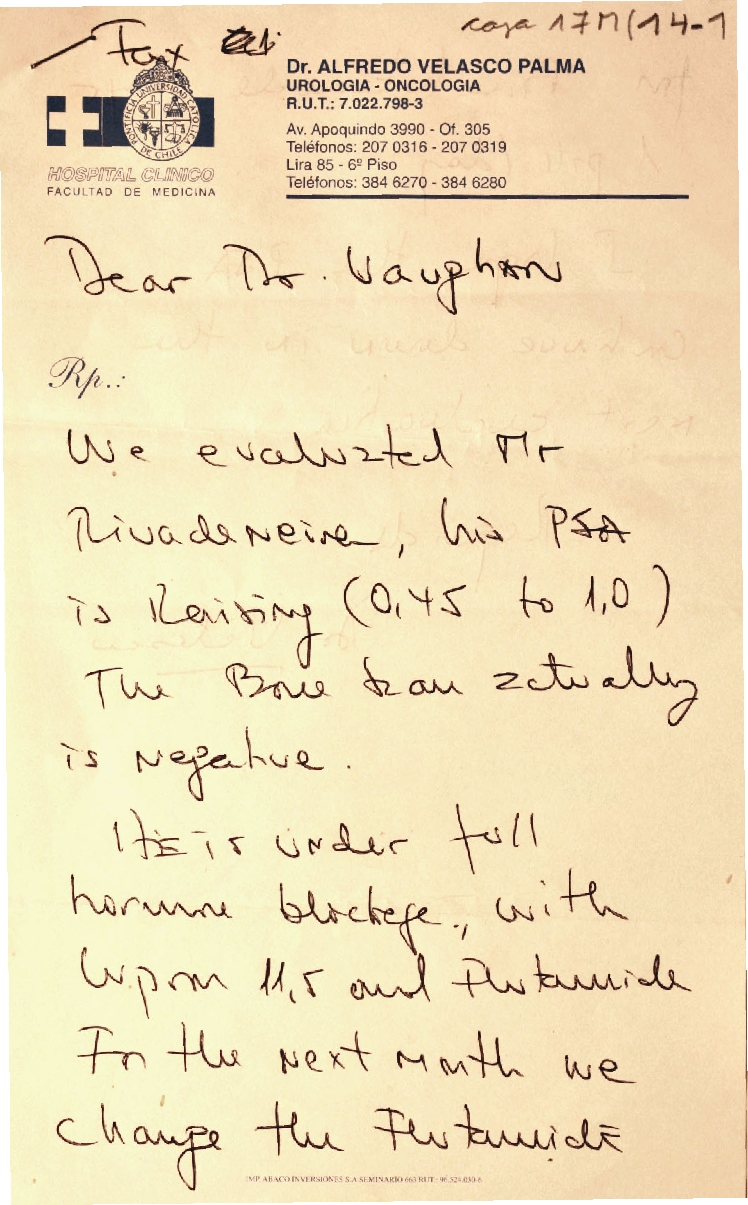 Fax
caja 17M/14-1
PONTIFICIA UNIVERSIDAD CATOLICA DE CHILE
HOSPITAL CLINICO
FACULTAD DE MEDICINA
Dr. ALFREDO VELASCO PALMA
UROLOGIA - ONCOLOGIA
R.U.T.: 7.022.798-3
Av. Apoquindo 3990 - Of. 305
Teléfonos: 207 0316 - 207 0319
Lira 85 - 6º Piso
Teléfonos: 384 6270 - 384 6280
Dear Dr. Vaughan
Rp.:
We evaluated Mr
Rivadeneira, his PSA
is Raising (0,45 to 1,0)
The Bone scan actually
is negative.
HE is under full
hormone blockege., with
Lupron 11,5 and Flutamide
For the next month we
change the Flutamide
IMP. ABACO INVERSIONES S.A SEMINARIO 663 RUT.: 96.524.030-6